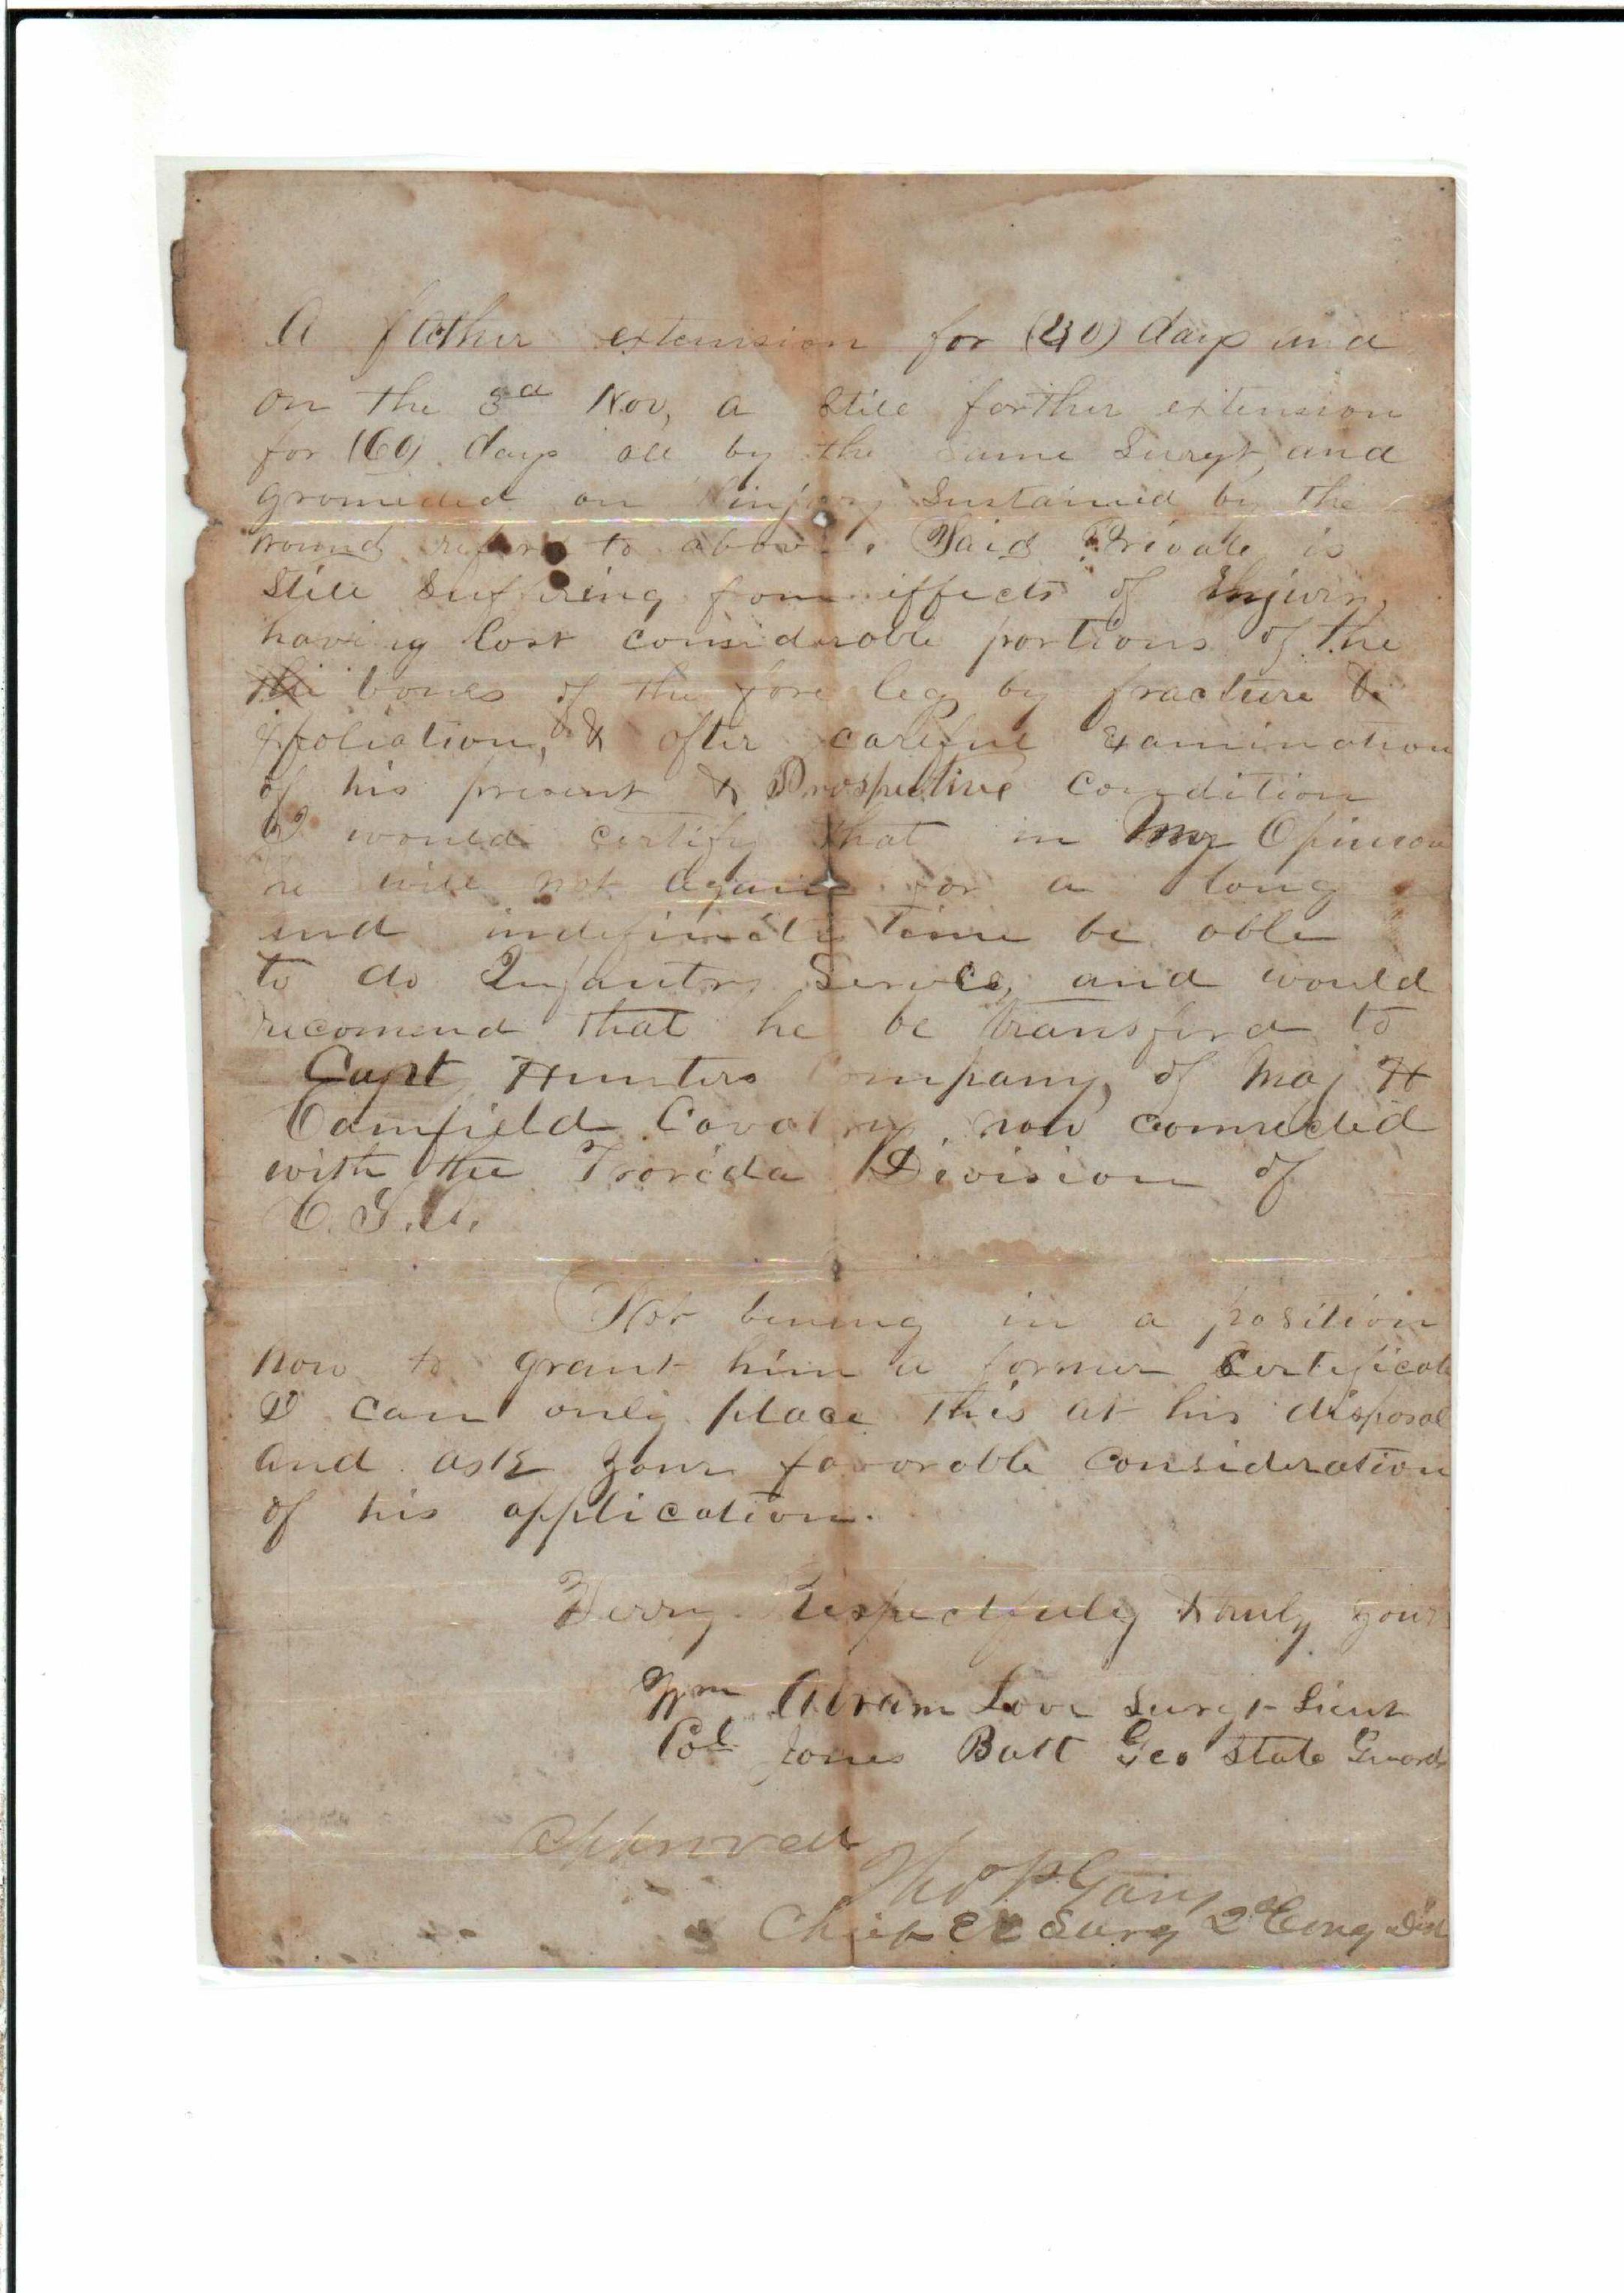 A farther extension for (40) days and
on the 3d Nov, a still forther extension
for (60) days all by the same Surgt, and
grounded on injory Sustained by the
wound referd to above. Said Private is
still suffering from effects of Injury,
having lost considerable portions of the
the bones of the fore leg by fracture &
effoliation, & after careful examination
of his present & Prospective condition
I would certify that in my Opinion
he will not again for a long
and indefinate time be able
to do Infantry Service, and would
recomend that he be transferd to
Capt Hunters Company, of Maj H
Camfield Cavalry now connected
with the Florida Division of
C.S.A.
Not beining in a position
now to grant him a former Certificate
I can only place this at his disposal
and ask your favorable consideration
of his application.
Verry Respectfuly & truly yours
Wm Abram Love Surgt Lieut
Col Jones Batt Geo State Guards
Approved
Chief Ex Surg 2d Cong Dist